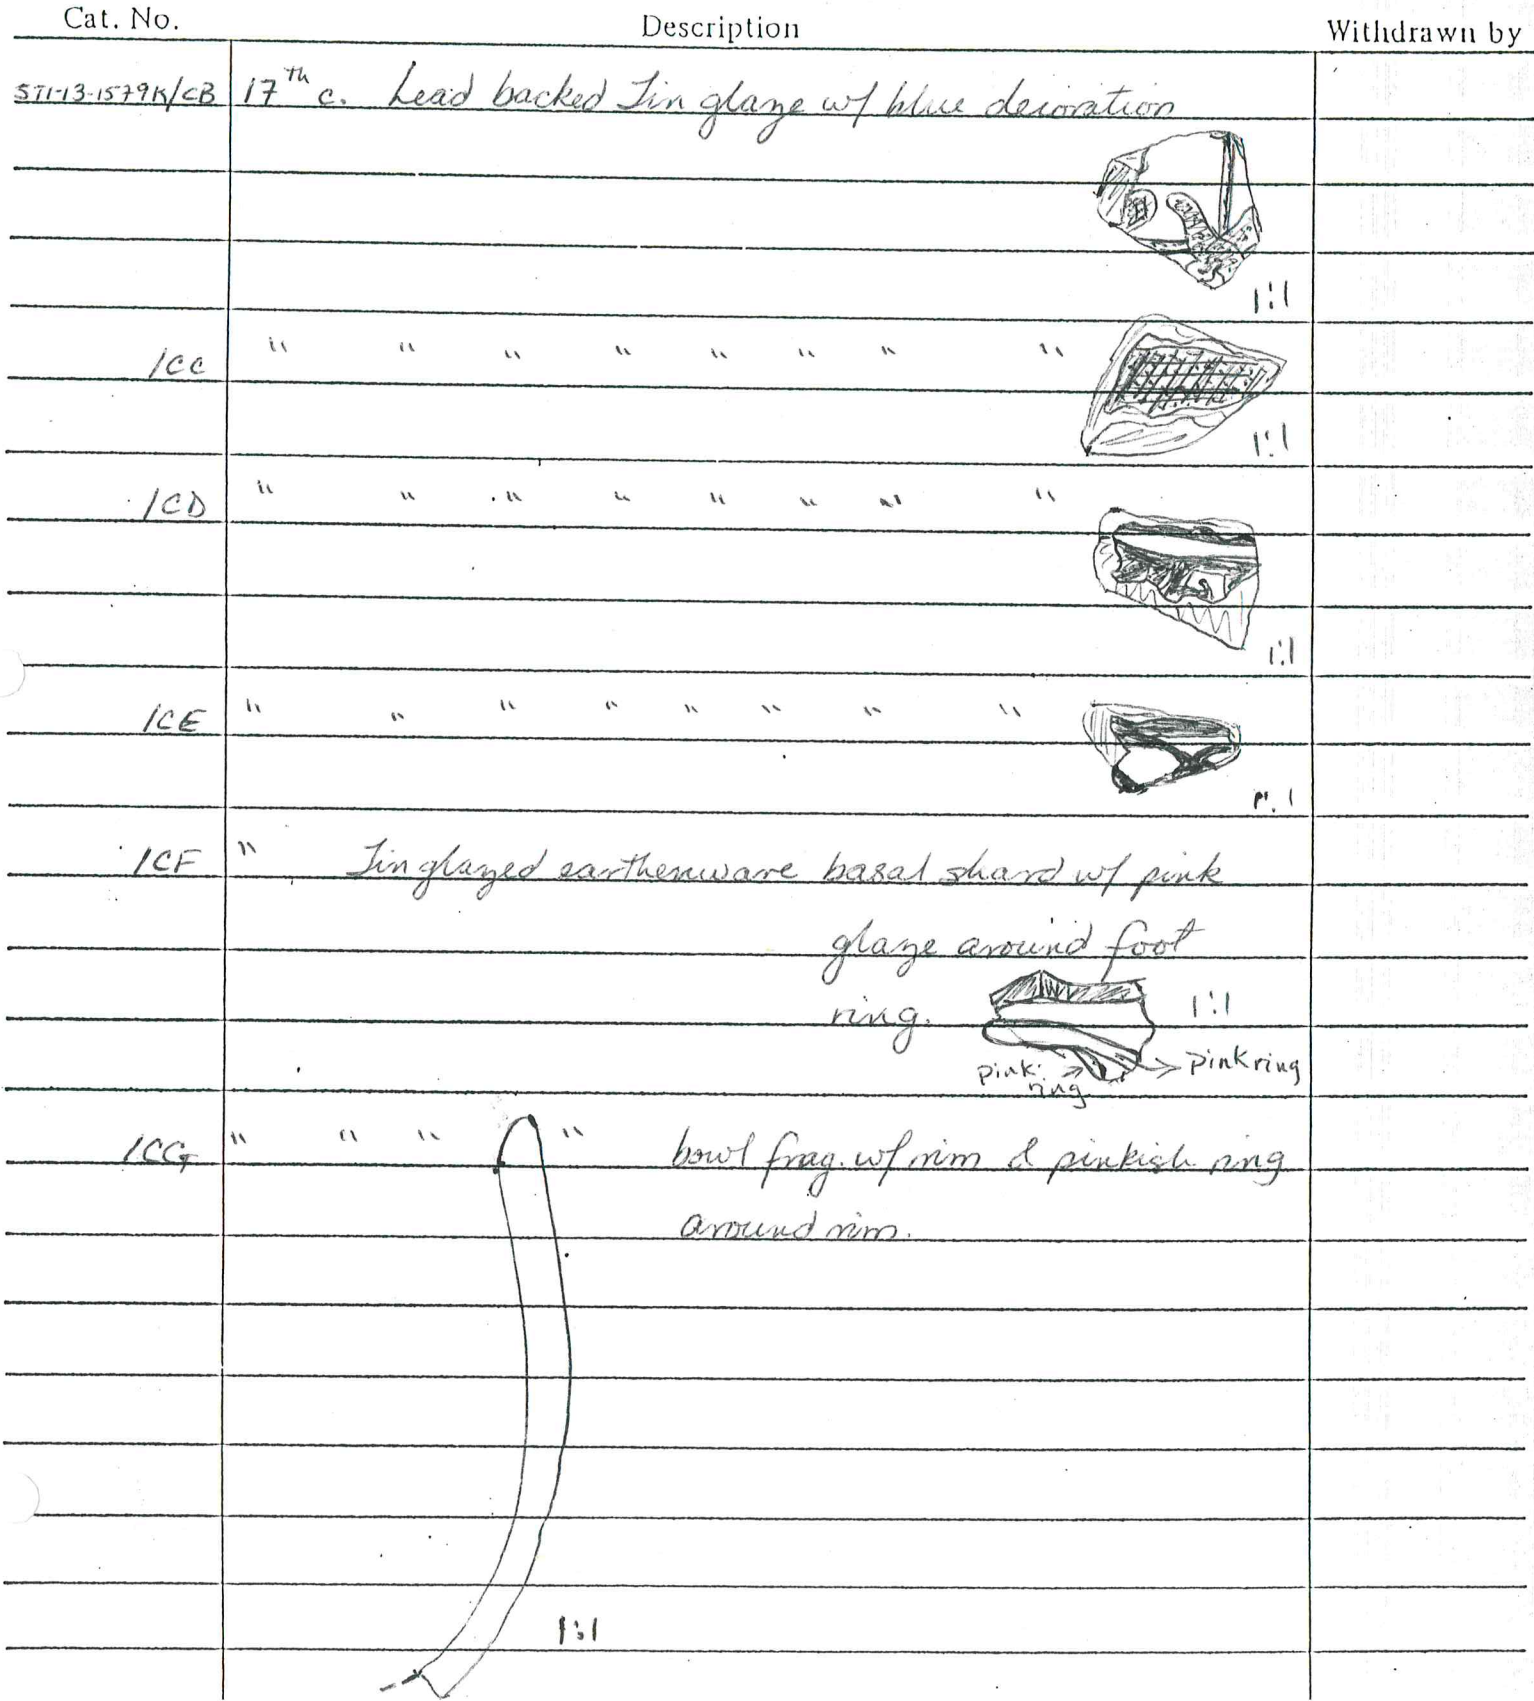 Cat. No. Description Withdrawn by
ST1-13-1579K/CB 17th c. Lead backed Tin glaze w/ blue decoration
1:1
/CC " " " " " " " "
1:1
/CD " " " " " " " "
1:1
/CE " " " " " " " "
1:1
/CF " Tin glazed earthenware basal shard w/ pink
glaze around foot
ring. 1:1
pink ring
pink ring
/CG " " " " bowl frag. w/ rim & pinkish ring
around rim.
1:1